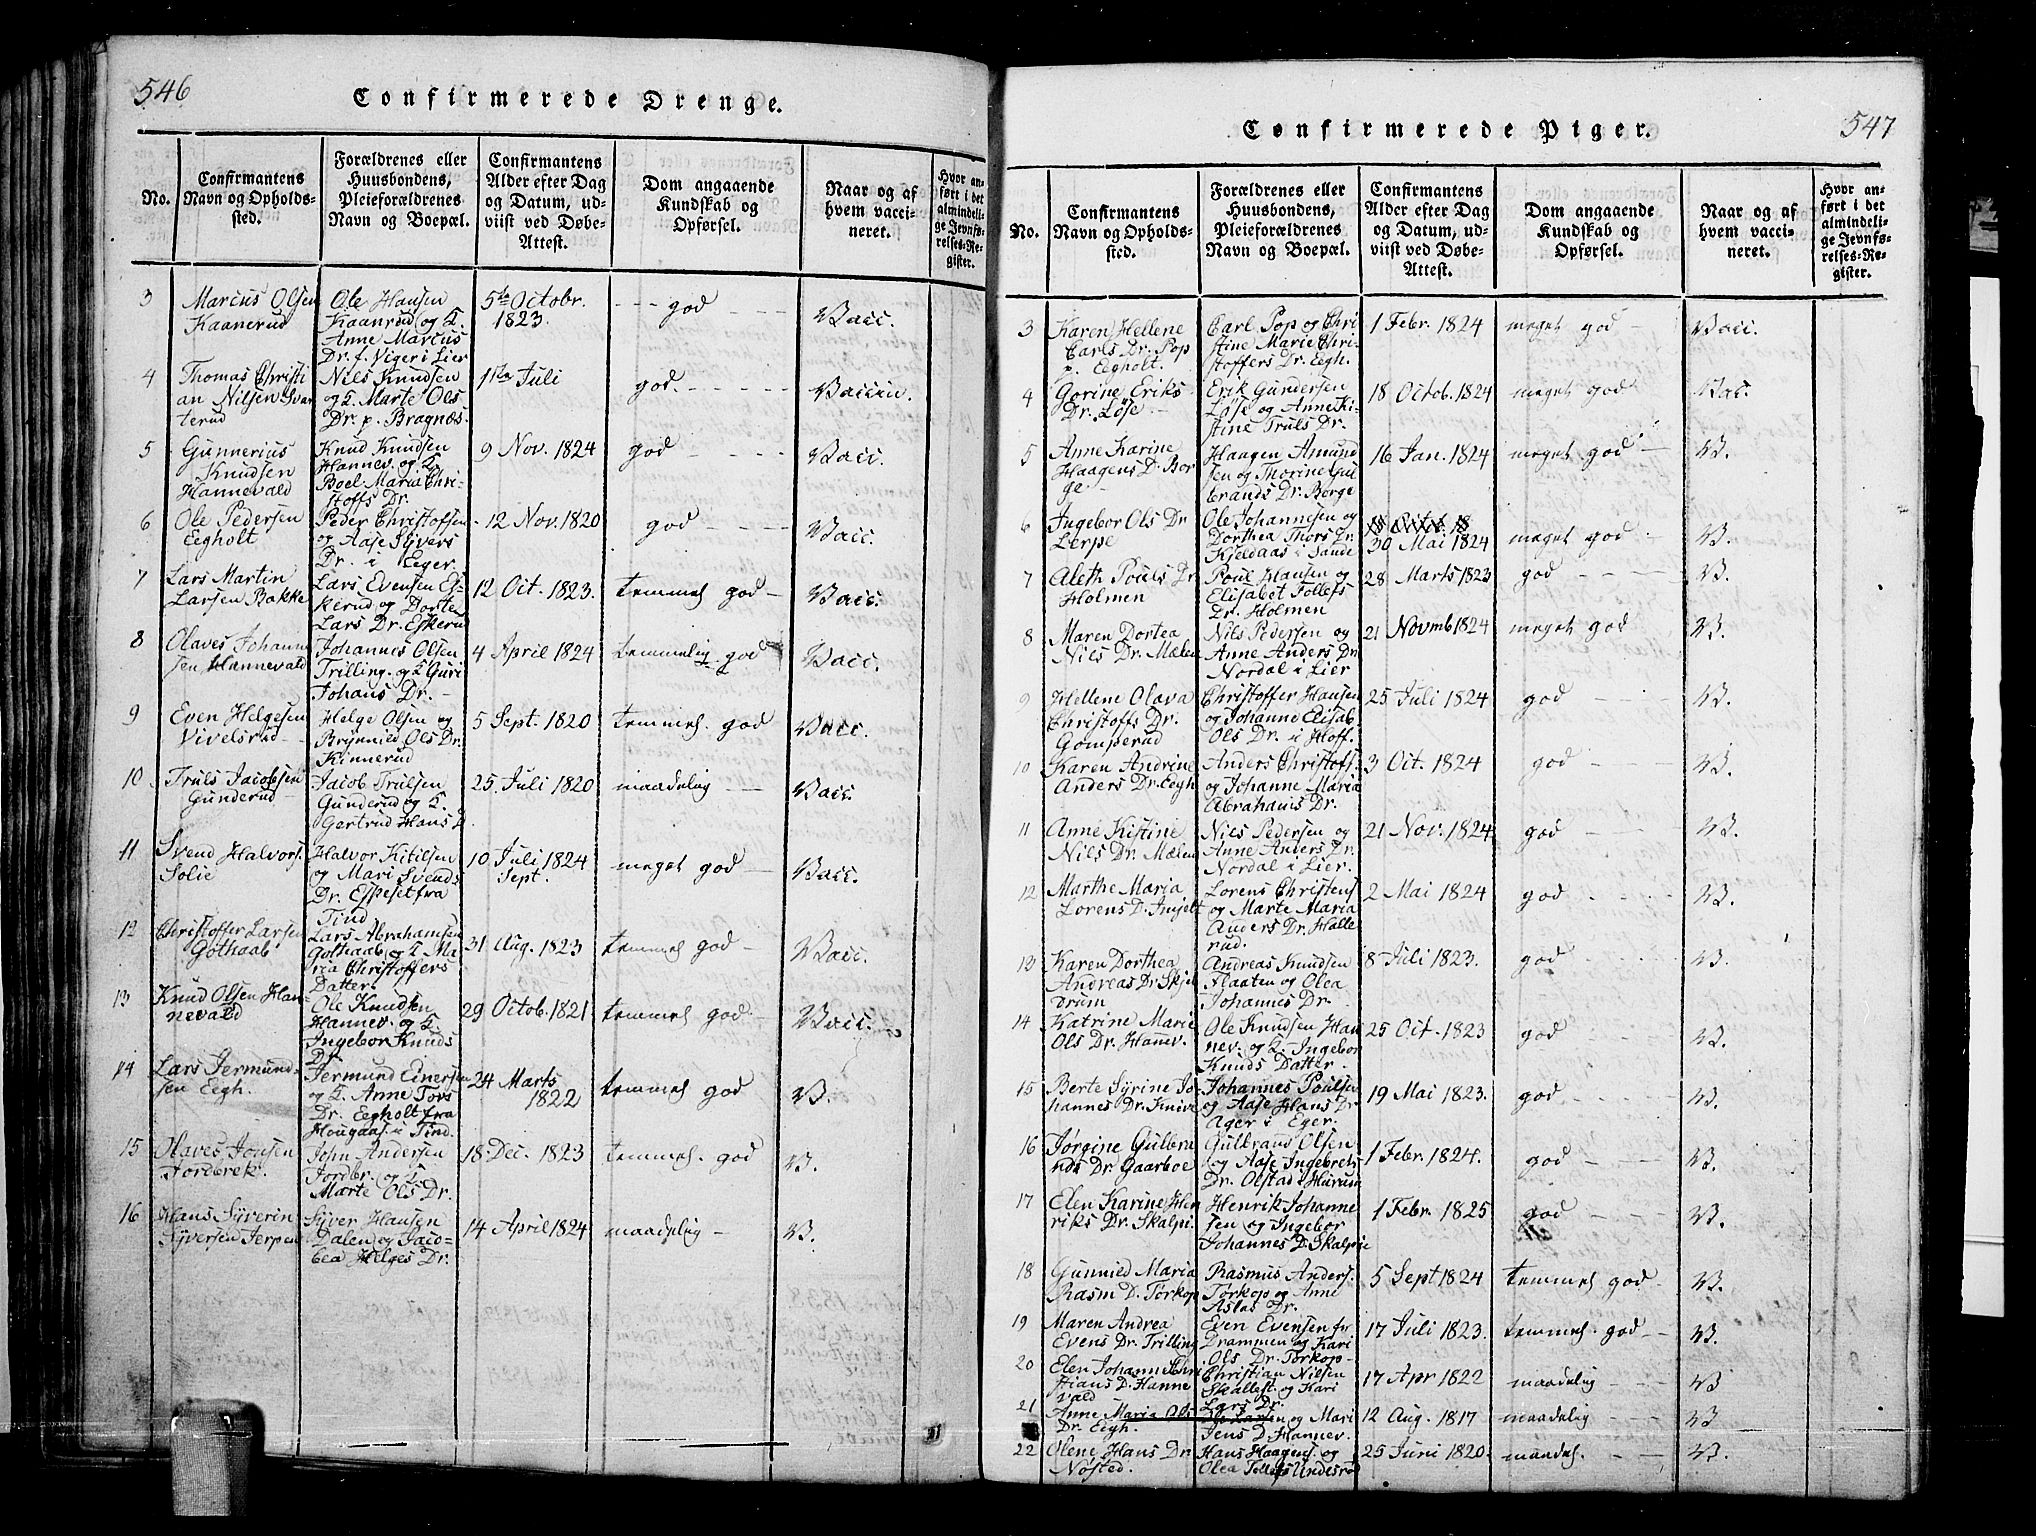 546
Confirmerede Drenge.
No.
Confirmantens
Navn og Opholds-
sted.
Forældrenes eller
Huusbondens,
Pleieforældrenes
Navn og Boepæl.
Confirmantens
Alder efter Dag
og Datum, ud-
viist ved Døbe-
Attest.
Dom angaaende
Kundskab og
Opførsel.
Naar og af
hvem vacci-
neret.
Hvor an-
ført i det
almindeli-
ge Jevnfø-
relses-Re-
gister.
3
Marcus Olsen
Kaanerud
Ole Hansen
Kaanrud og K.
Anne Marcus
Dr. f. Viger i Lier
5te Octobr.
1823.
god
Vacc.
4
Thomas Christi
an Nilsen Svar
terud
Nils Knudsen
og K. Marte Ols
Dr. p. Bragnæs.
1ste Juli
god
Vaccin.
5
Gunnerius
Knudsen
Hannevald
Knud Knudsen
Hannev. og K.
Boel Maria Chri-
stoffs Dr.
9 Nov. 1824
god
Vacc.
6
Ole Pedersen
Eegholt
Peder Christofsen
og Aase Syvers
Dr. i Eeger.
12 Nov. 1820
god
Vacc.
7
Lars Martin
Larsen Bakke
Lars Evensen Es-
kerud og Dorte
Lars Dr. Eskerud
12 Oct. 1823.
temmel god
Vacc.
8
Olaves Johann
sen Hannevald
Johannes Olsen
Trilling. og K. Guri
Johans Dr.
4 April 1824
temmelig god
Vacc.
9
Even Helgesen
Vivelsrud
Helge Olsen og
Brynnild Ols Dr.
Kinnerud
5 Sept. 1820
temmel. god
Vacc.
10
Truls Jacobsen
Gunderud
Jacob Trulsen
Gunderud og K.
Gertrud Hans D.
25 Juli 1820
maadelig
Vacc.
11
Svend Halvors.
Solie
Halvor Kitilsen
og Mari Svends
Dr. Espeset fra
Tind
10 Juli 1824
Sept.
meget god
Vacc.
12
Christoffer Larsen
Gothaab
Lars Abrahamsen
Gothaab og K. Ma
ria Christoffers
Datter
31 Aug. 1823
temmel god
Vacc.
13
Knud Olsen Han-
nevald
Ole Knudsen
Hannev. og K.
Ingebor Knuds
Dr.
29 Octob. 1821
temmel god
Vacc.
14
Lars Jermund-
sen Eegh.
Jermund Einersen
og K. Anne Tors
Dr. Eegholt fra
Hougaas i Tind.
24 Marts
1822
temmel god
V.
15
Olaves Jonsen
Jordbrek.
John Andersen
Jordbr. og K.
Marte Ols Dr.
18 Dec. 1823
temmel. god
V.
16
Hans Syverin
Syversen Jerpen
Syver Hansen
Dalen og Jacob-
bea Helges Dr.
14 April 1824
maadelig
V.
547
Confirmerede Piger.
No.
Confirmantens
Navn og Opholds-
sted.
Forældrenes eller
Huusbondens,
Pleieforældrenes
Navn og Boepæl.
Confirmantens
Alder efter Dag
og Datum, ud-
viist ved Døbe-
Attest.
Dom angaaende
Kundskab og
Opførsel.
Naar og af
hvem vacci-
neret.
Hvor an-
ført i det
almindeli-
ge Jevnfø-
relses-Re-
gister.
3
Karen Hellene
Carls Dr. Pop
p. Eegholt.
Carl Pop og Chri
stine Marie Chri-
stoffers Dr. Eegh.
1 Febr. 1824
meget god
Vacc.
4
Gorine Eriks
Dr. Løse
Erik Gundersen
Løse og Anne Ki-
stine Truls Dr.
18 Octob. 1824
meget god
Vac.
5
Anne Karine
Haagens D. Bor
ge
Haagen Amund
sen og Thorine Gul
brands Dr. Borge
16 Jan. 1824
meget god
V.
6
Ingebor Ols Dr
Lerpe
Ole Johannesen og
Dorthea Thors Dr.
Kjeldaas i Sande
30 Mai 1824
meget god
V.
7
Aleth Pouls Dr
Holmen
Poul Hansen og
Elisabet Tollefs
Dr. Holmen
28 Marts 1823
god
V.
8
Maren Dortea
Nils Dr. Mælen
Nils Pedersen og
Anne Anders Dr
Nordal i Lier
21 Novmb 1824
meget god
V.
9
Hellene Olava
Christoffs Dr.
Gomperud
Christoffer Hansen
og Johanne Elisab
Ols Dr. i Hoff.
25 Juli 1824
god
V.
10
Karen Andrine
Anders Dr. Eegh
Anders Christoff.
og Johanne Maria
Abrahams Dr.
3 Oct. 1824
god
V.
11
Anne Kistine
Nils Dr. Mælen
Nils Pedersen og
Anne Anders Dr.
Nordal i Lier.
21 Nov. 1824
god
V.
12
Marthe Maria
Lorens D. Imjelt
Lorens Christens
og Marte Maria
Anders Dr. Halle
rud.
2 Mai 1824
god
V.
13
Karen Dorthea
Andreas Dr. Skjel
drum
Andreas Knudsen
Flaaten og Olea
Johannes Dr.
8 Juli 1823.
god
V.
14
Katrine Marie
Ols Dr. Hanev.
Ole Knudsen Han
nev. og K. Ingebor
Knuds Datter
25 Oct. 1823
god
V.
15
Berte Syrine Jo-
hannes Dr. Knive
Johannes Poulsen
og Aase Hans Dr
Ager i Eger.
19 Mai 1823.
god
V.
16
Jørgine Gulbra
nds Dr Gaarboe
Gulbrand Olsen
og Aase Ingebrets
Dr. Olstad i Hurum
1 Febr. 1824.
god
V.
17
Elen Karine Hen
riks Dr. Skalpi.
Henrik Johanne
sen og Ingebor
Johannes D. Skalpie
1 Febr. 1825
god
V.
18
Gunnild Maria
Rasm D. Torkop
Rasmus Anders.
Torkop og Anne
Aslas Dr.
5 Sept 1824
temmel god
V.
19
Maren Andrea
Evens Dr. Trilling
Even Evensen fr
Drammen og Kari
Ols Dr. Torkop
17 Juli 1823.
temmel. god
V.
20
Elen Johann Chri
stians D. Hanne
vald
Christian Nilsen
Skallest. og Kari
Lars Dr.
17 Apr 1822
maadelig
V
21
Anne Maria Ols
Dr. Eegh.
og Mari
Jens D. Hannev.
12 Aug. 1817
maadelig
V
22
Olene Hans Dr.
Nøsted.
Hans Haagens. og
Olea Tollefs Undesrø
25 Juni 1820
maadel.
V.